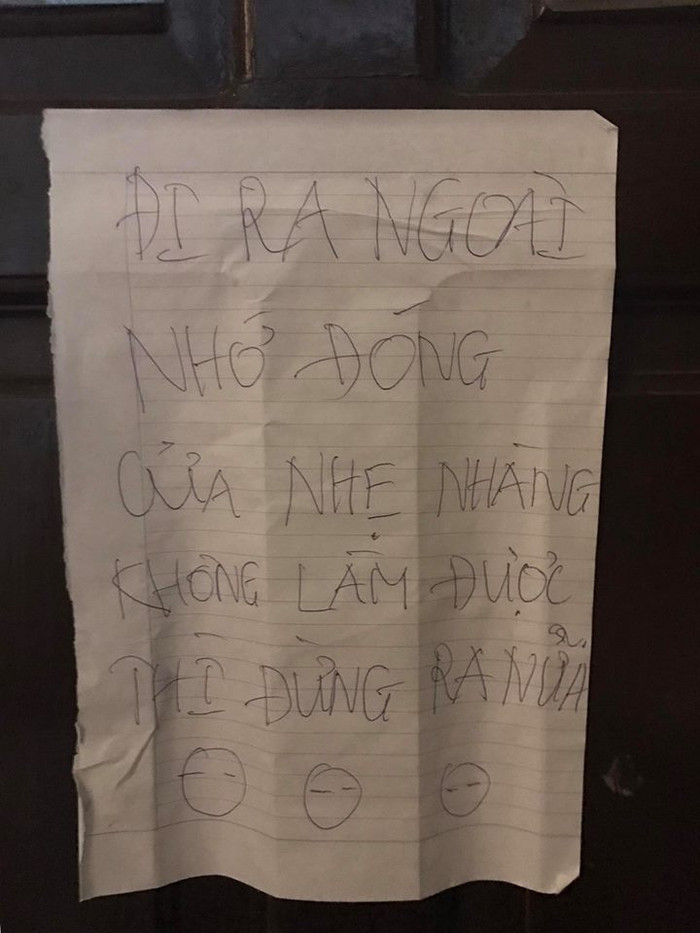 ĐI RA NGOÀI
NHỚ ĐÓNG
CỬA NHẸ NHÀNG
KHÔNG LÀM ĐƯỢC
THÌ ĐỪNG RA NỮA